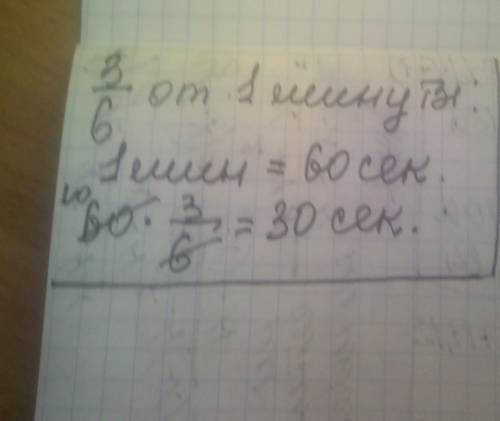 3/6 от 1 минуты.
1 мин = 60 сек.
10
60 · 3/6 = 30 сек.